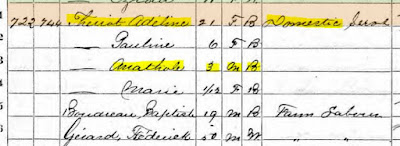 722 744 Theriot Adeline 21 F B Domestic Serv
— Pauline 6 F B
— Anathole 3 M B
— Marie 1/12 F B
Boudreau, Baptiste 19 M B Farm Laborer
Girard, Frederick 50 M W " "